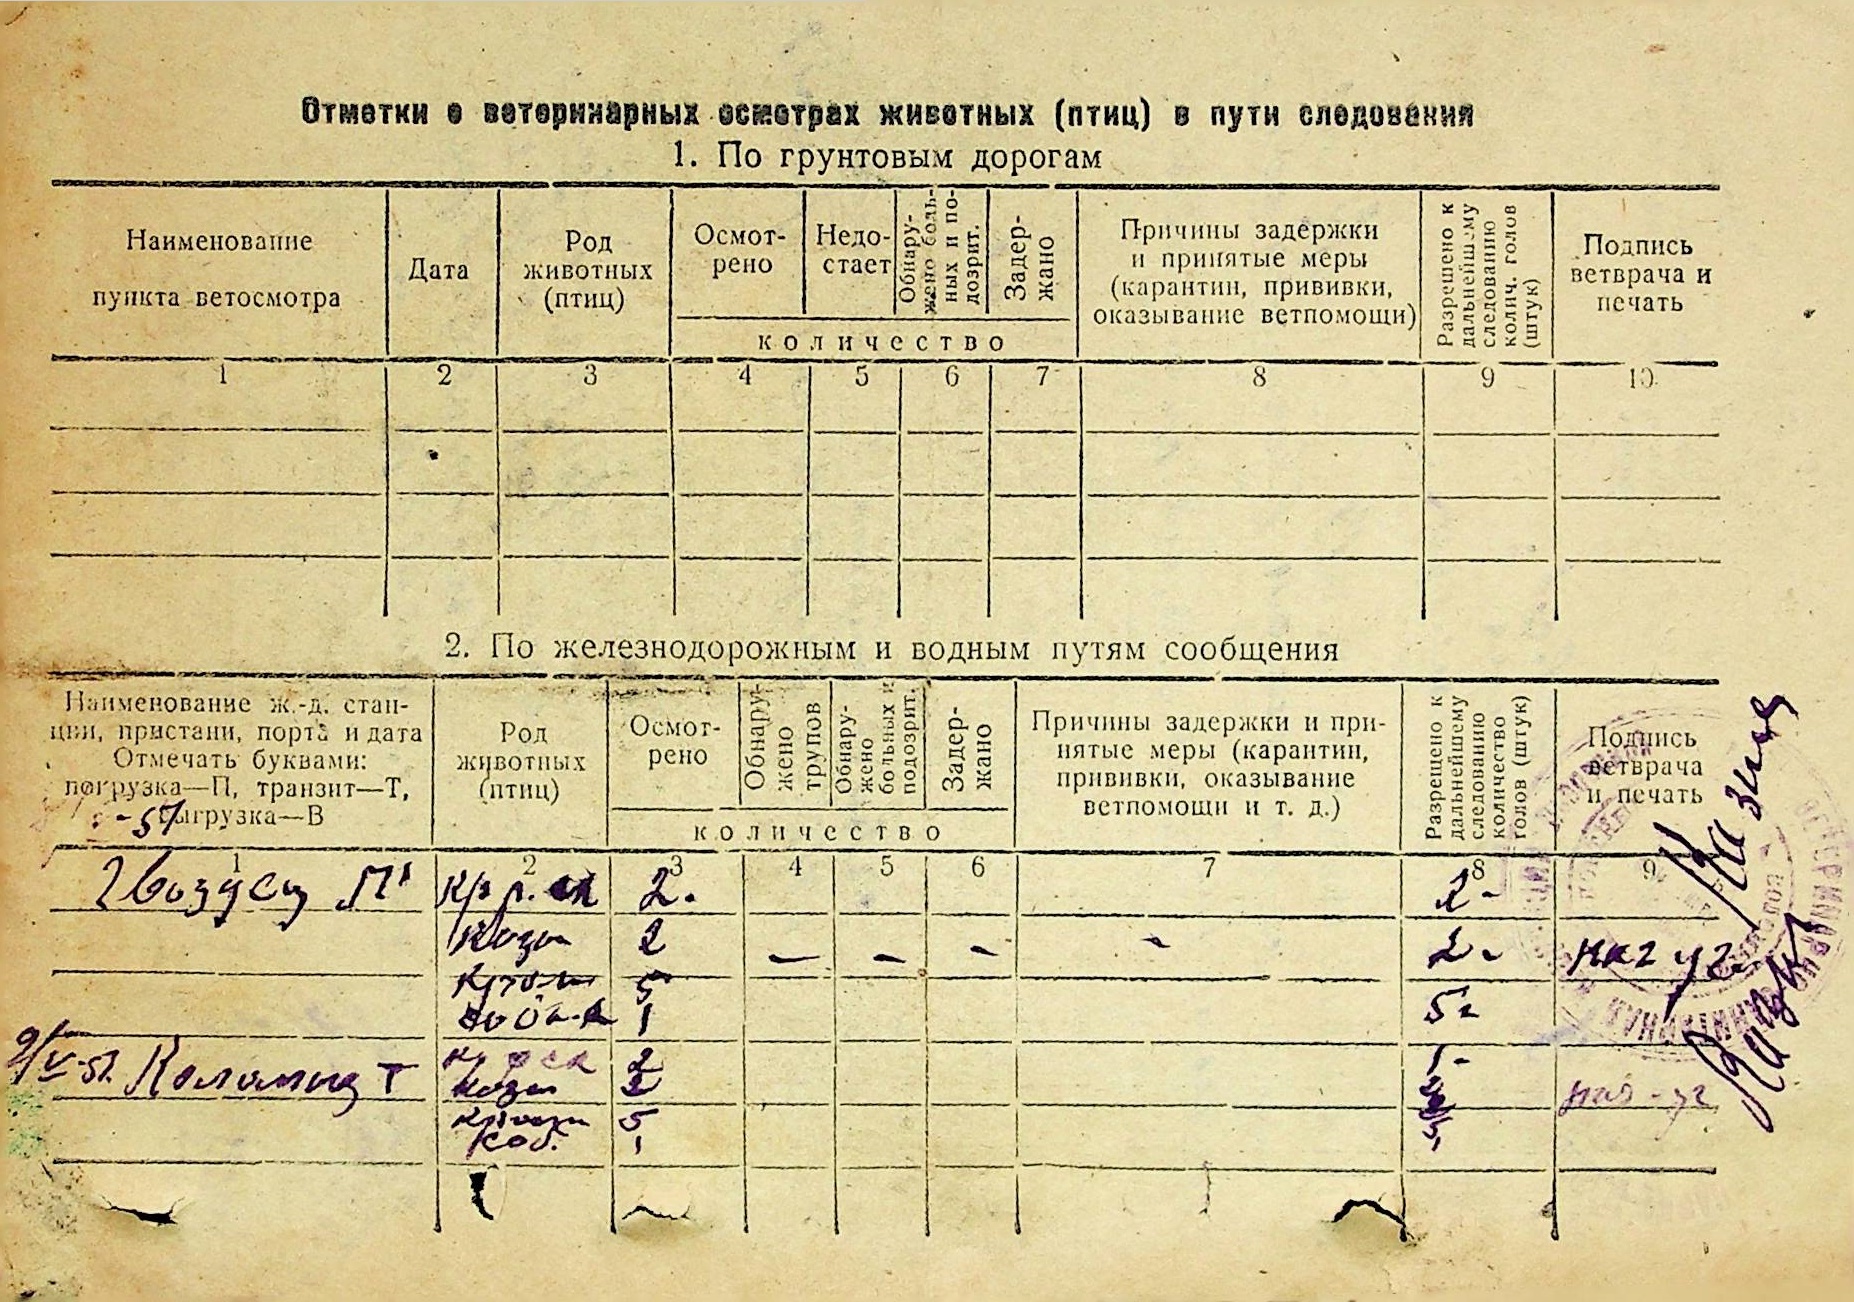 Отметки о ветеринарных осмотрах животных (птиц) в пути следования
1. По грунтовым дорогам
Наименование
пункта ветосмотра
Дата
Род
животных
(птиц)
Осмот-
рено
Недо-
стает
Обнару-
жено боль-
ных и по-
дозрит.
Задер-
жано
количество
Причины задержки
и принятые меры
(карантин, прививки,
оказывание ветпомощи)
Разрешено к
дальнейшему
следованию
колич. голов
(штук)
Подпись
ветврача и
печать
1 2 3 4 5 6 7 8 9 10
2. По железнодорожным и водным путям сообщения
Наименование ж.-д. стан-
ции, пристани, порта и дата
Отмечать буквами:
погрузка—П, транзит—Т,
выгрузка—В
Род
животных
(птиц)
Осмот-
рено
Обнару-
жено
трупов
Обнару-
жено
больных и
подозрит.
Задер-
жано
количество
Причины задержки и при-
нятые меры (карантин,
прививки, оказывание
ветпомощи и т. д.)
Разрешено к
дальнейшему
следованию
количество
голов (штук)
Подпись
ветврача
и печать
1 2 3 4 5 6 7 8 9
-51
П 2. 2-
Козы 2 - - - - 2-
5
1 5
9/V-51. Коломыя Т 2 1-
Козы 2
5 5
Коб. 1